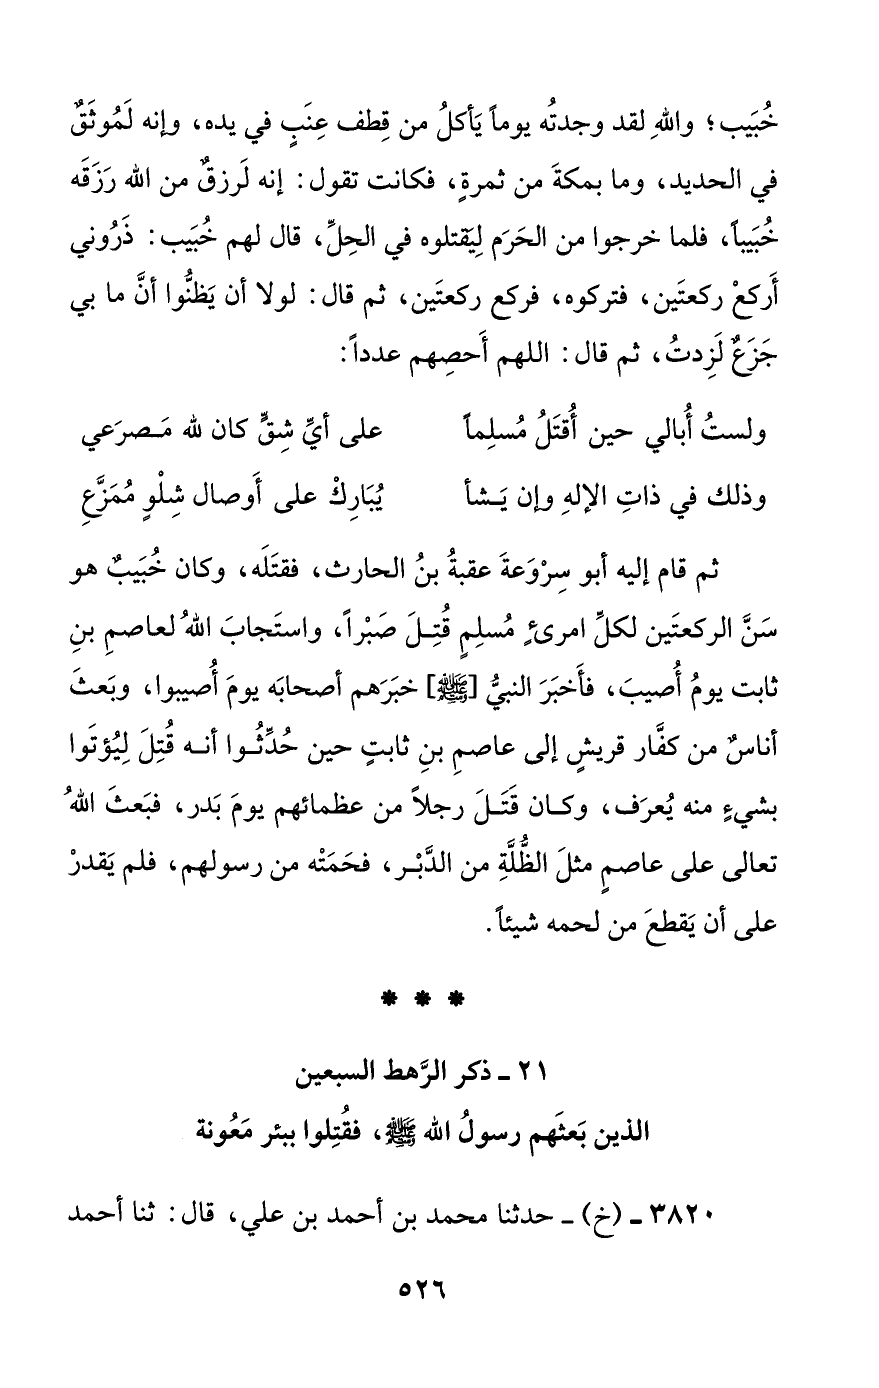 خُبَيب؛ واللهِ لقد وجدتُه يوماً يَأكلُ من قِطف عِنَبٍ في يده، وإنه لَمُوثَقٌ
في الحديد، وما بمكةَ من ثمرةٍ، فكانت تقول: إنه لَرزقٌ من الله رَزَقَه
خُبَيباً، فلما خرجوا من الحَرَم لِيَقتلوه في الحِلِّ، قال لهم خُبَيب: ذَرُوني
أَركعْ ركعتَين، فتركوه، فركع ركعتَين، ثم قال: لولا أن يَظنُّوا أنَّ ما بي
جَزَعٌ لَزِدتُ، ثم قال: اللهم أَحصِهم عدداً:
ولستُ أُبالي حين أُقتَلُ مُسلِماً على أيِّ شِقٍّ كان لله مَـصرَعي
وذلك في ذاتِ الإلهِ وإن يَـشأ يُبَارِكْ على أَوصال شِلْوٍ مُمَزَّعِ
ثم قام إليه أبو سِرْوَعةَ عقبةُ بنُ الحارث، فقتَلَه، وكان خُبَيبٌ هو
سَنَّ الركعتَين لكلِّ امرئٍ مُسلِمٍ قُتِـلَ صَبْراً، واستَجابَ اللهُ لعاصمِ بنِ
ثابت يومُ أُصيبَ، فأَخبَرَ النبيُّ [ﷺ] خبَرَهم أصحابَه يومَ أُصيبوا، وبَعثَ
أناسٌ من كفَّار قريشٍ إلى عاصمِ بنِ ثابتٍ حين حُدِّثُـوا أنـه قُتِلَ لِيُؤتَوا
بشيءٍ منه يُعرَف، وكـان قَتَـلَ رجلاً من عظمائهم يومَ بَدر، فبَعثَ اللهُ
تعالى على عاصمٍ مثلَ الظُّلَّةِ من الدَّبْـر، فحَمَتْه من رسولهم، فلم يَقدرْ
على أن يَقطعَ من لحمه شيئاً.
* * *
٢١ ـ ذكر الرَّهط السبعين
الذين بَعثَهم رسولُ الله ﷺ، فقُتِلوا ببئر مَعُونة
٣٨٢٠ ـ (خ) ـ حدثنا محمد بن أحمد بن علي، قال: ثنا أحمد
٥٢٦